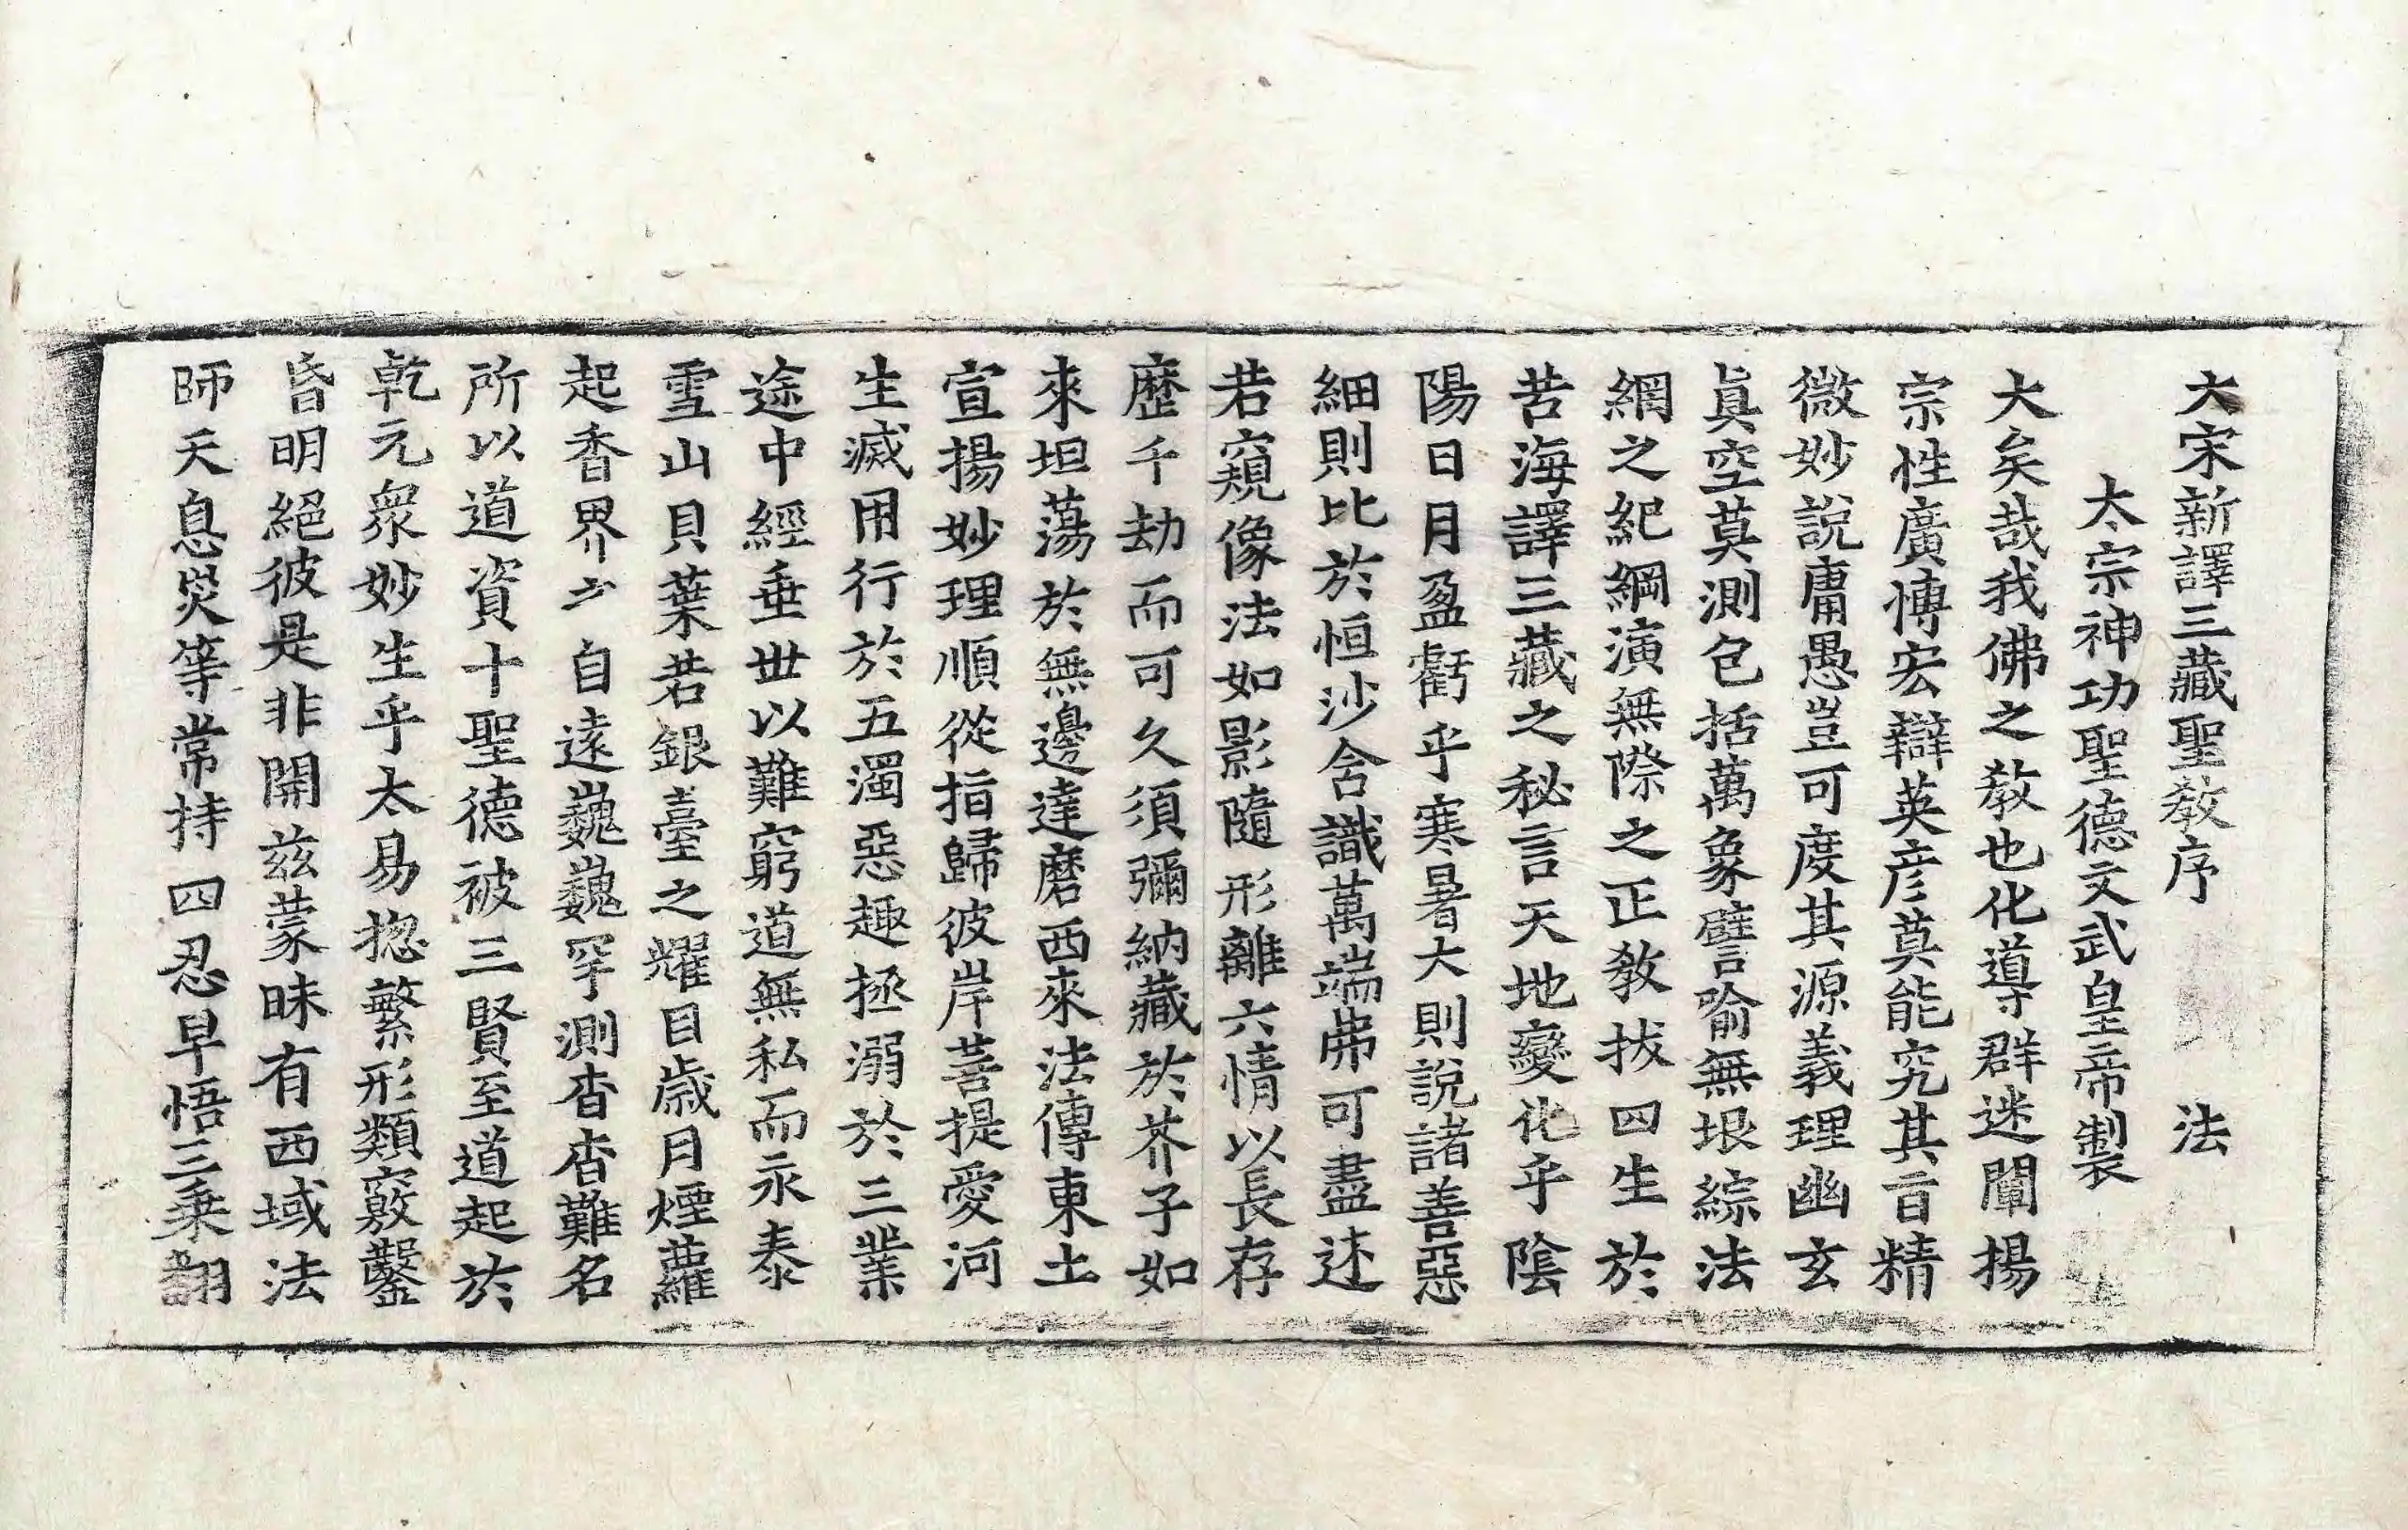 大宋新譯三藏聖教序 法
太宗神功聖德文武皇帝製
大矣哉我佛之教也化導群迷闡揚
宗性廣愽宏辯英彦莫能究其旨精
微妙說庸愚豈可度其源義理幽玄
眞空莫測包括萬象譬喻無垠綜法
網之紀綱演無際之正教拔四生於
苦海譯三藏之秘言天地變化乎陰
陽日月盈虧乎寒暑大則說諸善惡
細則比於恒沙含識萬端弗可盡述
若窺像法如影隨形離六情以長存
歷千劫而可久須彌納藏於芥子如
來坦蕩於無邊達磨西來法傳東土
宣揚妙理順從指歸彼岸菩提愛河
生滅用行於五濁惡趣拯溺於三業
途中經垂丗以難窮道無私而永泰
雪山貝葉若銀臺之耀目歲月煙蘿
起香界之自遠巍巍罕測杳杳難名
所以道資十聖德被三賢至道起於
乾元衆妙生乎太易揔繁形類竅鑿
昏明絕彼是非開玆蒙昧有西域法
師天息災等常持四忍早悟三乗翻